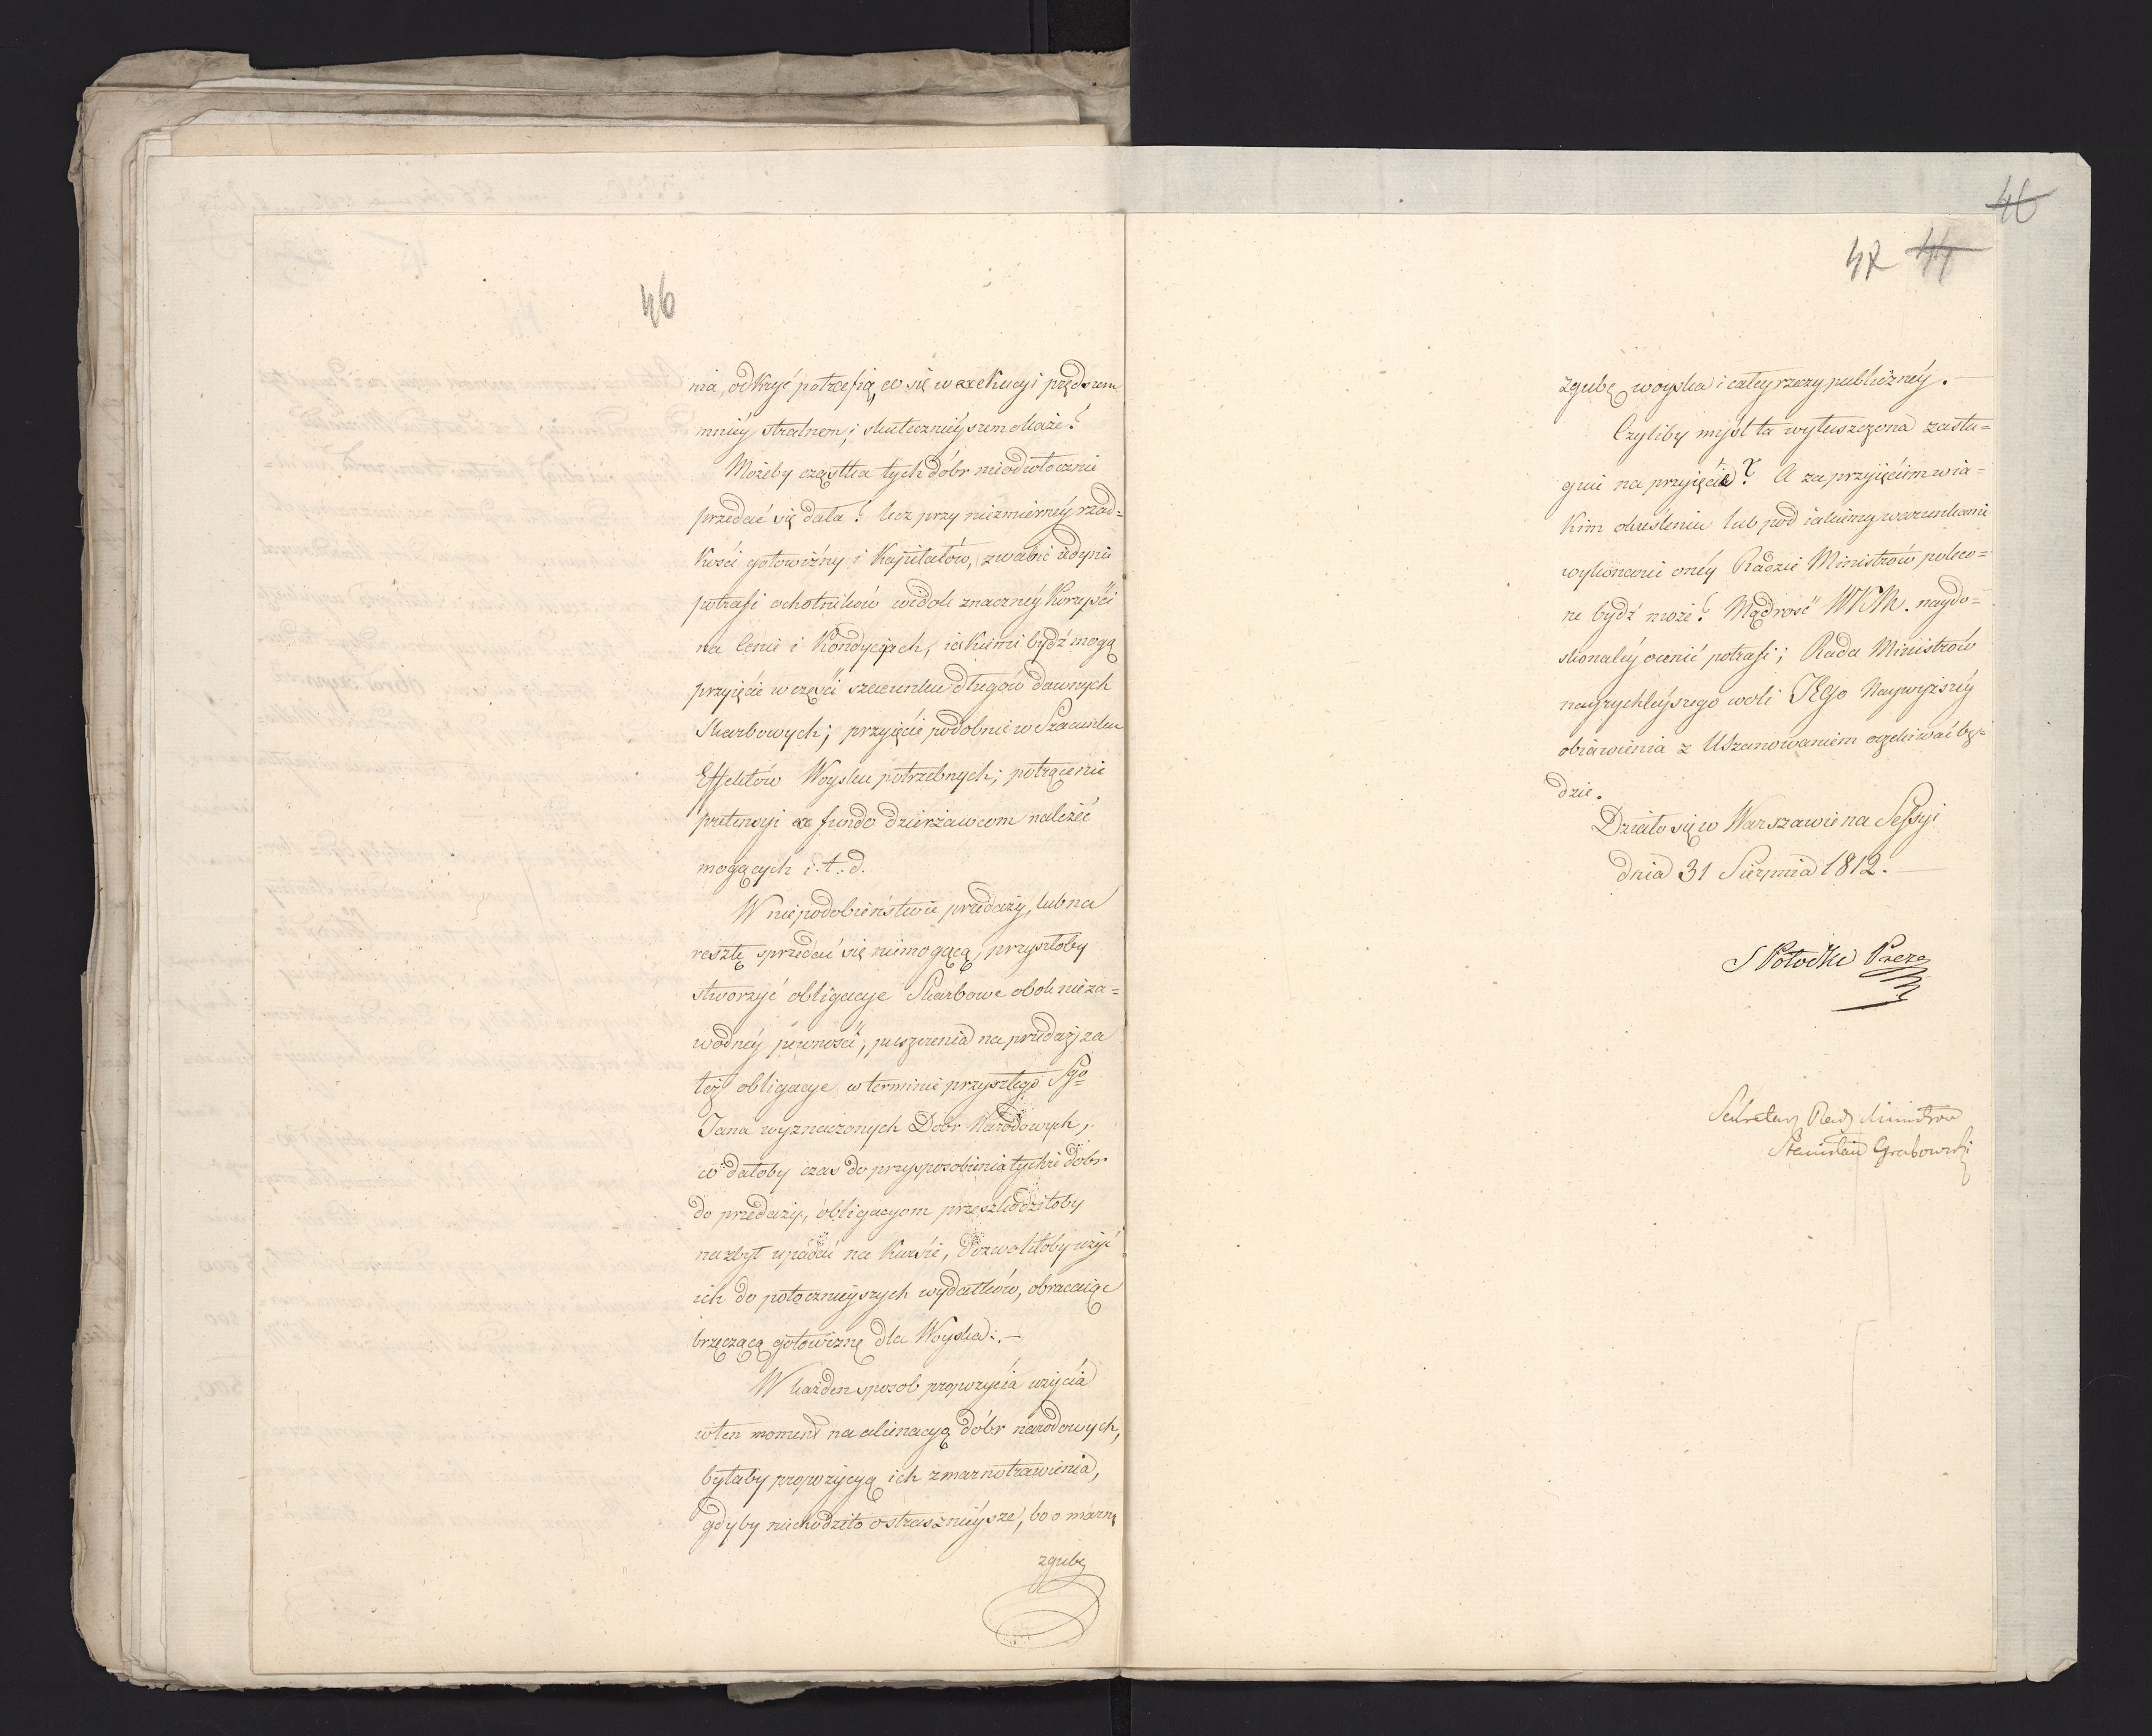 46
nia, odkryć potrafią, co się w exekucyi prędszem
mniéy stratnem, i skutecznieyszem okaże?
Możeby cząstka tych dóbr nieodwłocznie
przedać się dała? lecz przy niezmiernéy rzad=
kości gotowizny i kapitałów, zwabić iedynie
potrafi ochotników widok znacznéy korzyści
na Cenie i Kondycyach, iakiemi bydź mogą
przyięcie w części szacunku długów dawnych
Skarbowych; przyięcie podobnie w Szacunku
Effektów Woysku potrzebnych; potrącenie
pretensyi ex fundo dzierżawcom należeć
mogących i. t. d.
W niepodobieństwie przedaży, lub na
resztę sprzedać się niemogącą, przyszłoby
stworzyć obligacye Skarbowe obok nieza=
wodnéy pewności, puszczenia na przedaż za
też obligacye w terminie przyszłego Sgo
Jana wyznaczonych Dobr Narodowych,
co dałoby czas do przysposobienia tychże dobr
do przedaży, obligacyom przeszkodziłoby
nazbyt upadać na kursie, dozwoliłoby użyć
ich do potocznieyszych wydatków, obracaiąc
brzęczącą gotowiznę dla Woyska. —
W każden sposob propozycia użycia
w ten moment na alienacyą dóbr narodowych,
byłaby propozycyą ich zmarnotrawienia,
gdyby niechodziło o strasznieysze, bo o marną
zgubę
46
47 44
zgubę woyska i całey rzeczy publicznéy. —
Czyliby myśl ta wyłuszczona zasłu=
guie na przyięcie? A za przyięciem w ia=
kim określeniu lub pod iakiemy warunkami
wykonanie onéy Radzie Ministrów poleco=
ne bydź może? Mądrość WKM. naydo=
skonaléy ocenić potrafi; Rada Ministrów
nayrychleyszego woli Jego Naywyższéy
obiawienia z Uszanowaniem oczekiwać bę=
dzie.
Działo się w Warszawie na Sessyi
dnia 31 Sierpnia 1812. —
S Potocki Prezes
Sekretarz Rady Ministrow
Stanisław Grabowski